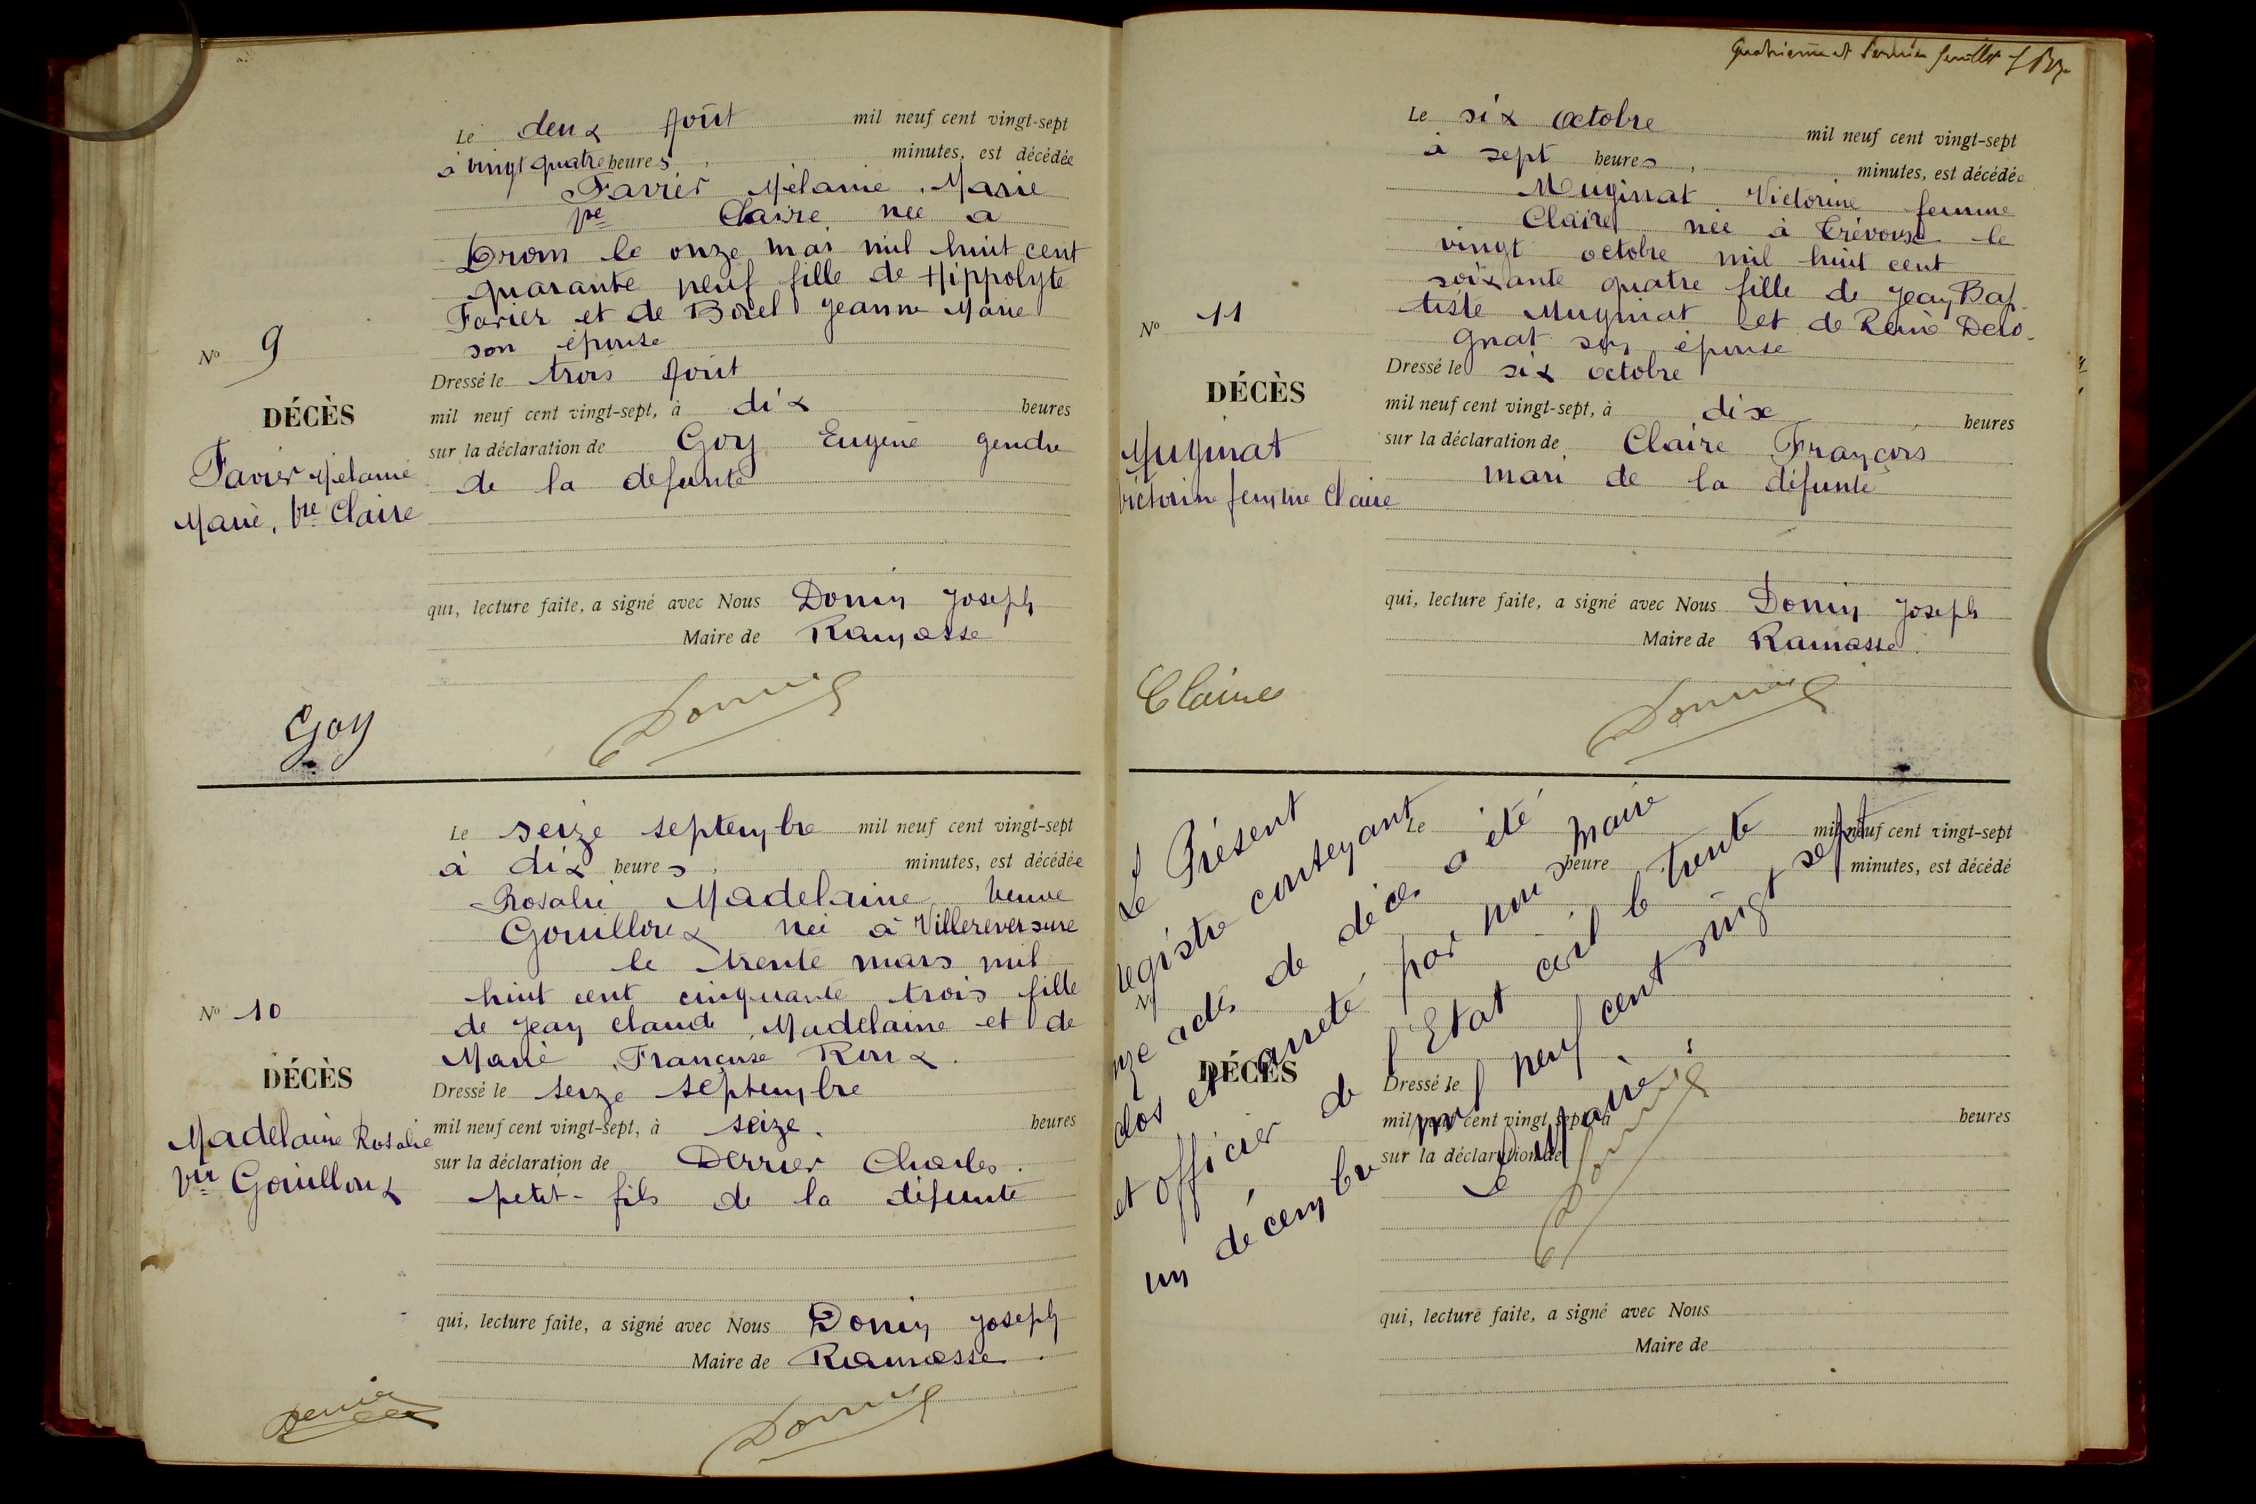 Le deux Août mil neuf cent vingt-sept
à vingt quatre heures, minutes, est décédée
Favier Mélanie, Marie
vve Claire née a
Drom le onze mai mil huit cent
quarante neuf fille de Hippolyte
Favier et de Borel Jeanne Marie
son épouse
Nº 9
DÉCÈS
Favier Mélanie
Marie, vve Claire
Dressé le trois Août
mil neuf cent vingt-sept, à dix heures
sur la déclaration de Goy Eugène gendre
de la défunte
qui, lecture faite, a signé avec Nous Donin Joseph
Maire de Ramasse
Goy
Donin
Le seize septembre mil neuf cent vingt-sept
à dix heures, minutes, est décédée
Rosalie Madelaine veuve
Gouilloux née à Villereversure
le trente mars mil
huit cent cinquante trois fille
de Jean Claude Madelaine et de
Marie Françoise Roux.
Nº 10
DÉCÈS
Madelaine Rosalie
vve Gouilloux
Dressé le seize septembre
mil neuf cent vingt-sept, à seize. heures
sur la déclaration de Derrier Charles.
petit-fils de la défunte
qui, lecture faite, a signé avec Nous Donin Joseph
Maire de Ramasse.
Donin
Quatrième et dernier feuillet
Le six octobre mil neuf cent vingt-sept
à sept heures, minutes, est décédée
Muginat Victorine femme
Claire née à Trévoux le
vingt octobre mil huit cent
soixante quatre fille de Jean Bap-
tiste Muginat et de Reine Dero-
gnat son épouse
Nº 11
DÉCÈS
Muginat
Victorine femme Claire
Dressé le six octobre
mil neuf cent vingt-sept, à dix heures
sur la déclaration de Claire François
mari de la défunte
qui, lecture faite, a signé avec Nous Donin Joseph
Maire de Ramasse.
Claire
Donin
Le Présent
registre contenant
onze actes de décès a été
clos et arrêté par nous maire
et officier de l'Etat civil le trente
un décembre mil neuf cent vingt sept
Le Maire:
Donin
Le mil neuf cent vingt-sept
heure minutes, est décédé
Nº
DÉCÈS
Dressé le
mil neuf cent vingt-sept, à heures
sur la déclaration de
qui, lecture faite, a signé avec Nous
Maire de